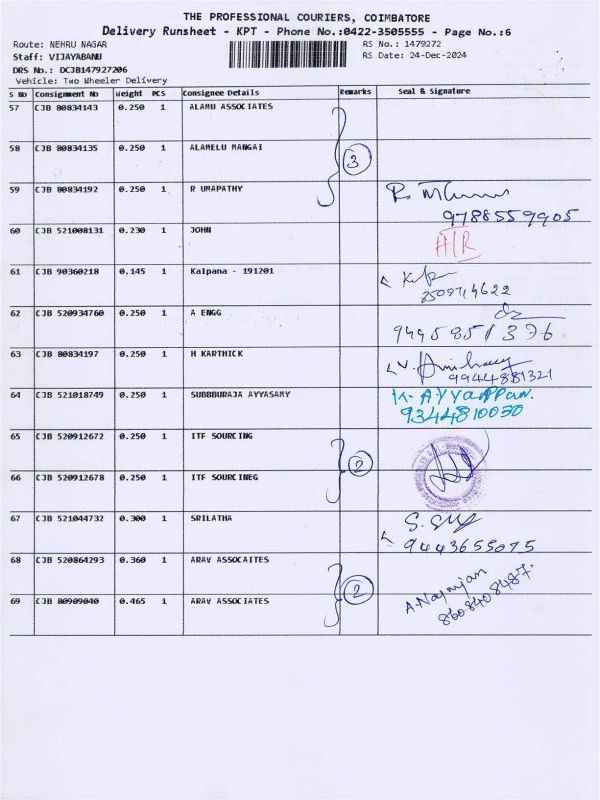 THE PROFESSIONAL COURIERS, COIMBATORE
Delivery Runsheet - KPT - Phone No.:0422-3505555 - Page No.:6
Route: NEHRU NAGAR RS No.: 1479272
Staff: VIJAYABANU RS Date: 24-Dec-2024
DRS No.: DCJB147927206
Vehicle: Two Wheeler Delivery
S No Consignment No Weight PCS Consignee Details Remarks Seal & Signature
57 CJB 80834143 0.250 1 ALAMU ASSOCIATES
58 CJB 80834135 0.250 1 ALAMELU MANGAI 3
59 CJB 80834192 0.250 1 R UMAPATHY
9788559905
60 CJB 521008131 0.230 1 JOHN A/R
61 CJB 90360218 0.145 1 Kalpana - 191201
62 CJB 520934760 0.250 1 A ENGG
9495851376
63 CJB 80834197 0.250 1 H KARTHICK
9944881321
64 CJB 521018749 0.250 1 SUBBBURAJA AYYASAMY K. AYYAPPan.
9344810030
65 CJB 520912672 0.250 1 ITF SOURCING 2
66 CJB 520912678 0.250 1 ITF SOURCINEG
67 CJB 521044732 0.300 1 SRILATHA
9443655075
68 CJB 520864293 0.360 1 ARAV ASSOCAITES 2
69 CJB 80909040 0.465 1 ARAV ASSOCIATES
8608408487.